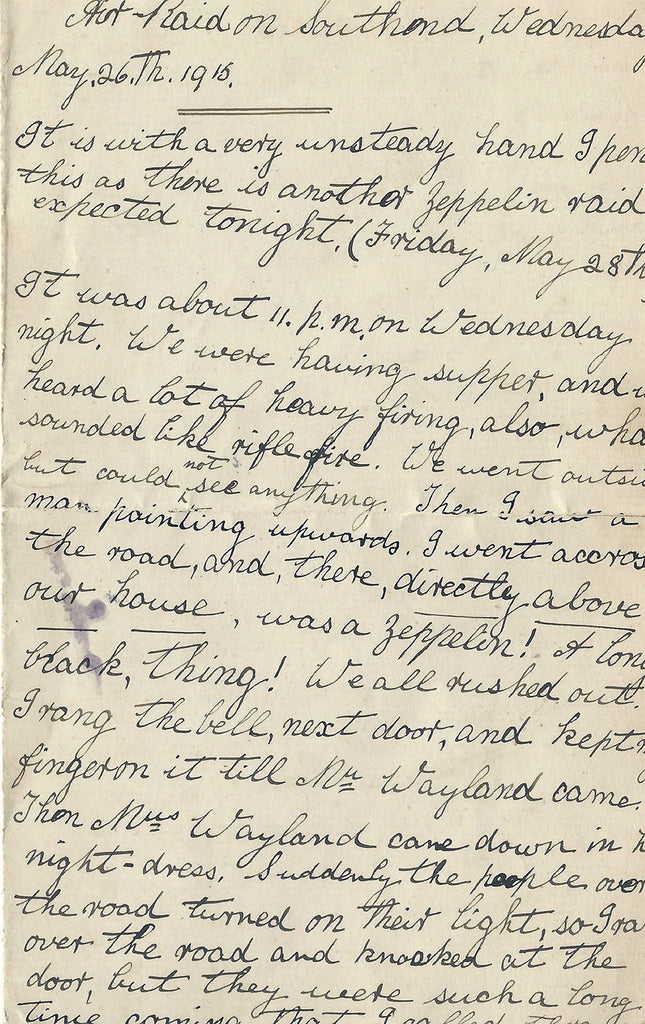 Air-Raid on Southend, Wednesda
May. 26.Th. 1915.
It is with a very unsteady hand I pen
this as there is another Zeppelin raid
expected tonight. (Friday, May 28th
It was about 11. p.m. on Wednesday
night. We were having supper, and w
heard a lot of heavy firing, also, wha
sounded like rifle fire. We went outsi
but could not see anything. Then I saw a
man pointing upwards. I went accros
the road, and, there, directly above
our house, was a Zeppelin! A lon
black, thing! We all rushed out.
I rang the bell, next door, and kept m
finger on it till Mr Wayland came.
Then Mrs Wayland came down in h
night-dress. Suddenly the people over
the road turned on their light, so I ra
over the road and knocked at the
door, but they were such a long
time coming that I called